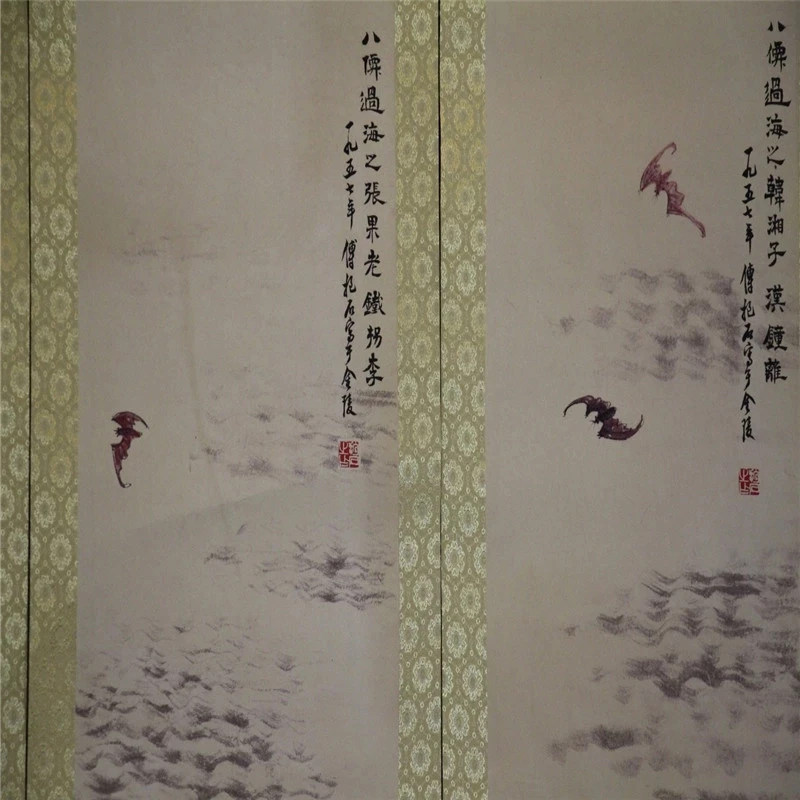 八僊過海之韓湘子 漢鐘離
一九五七年 傅抱石寫于金陵
八僊過海之張果老鐵拐李
一九五七年 傅抱石寫于金陵